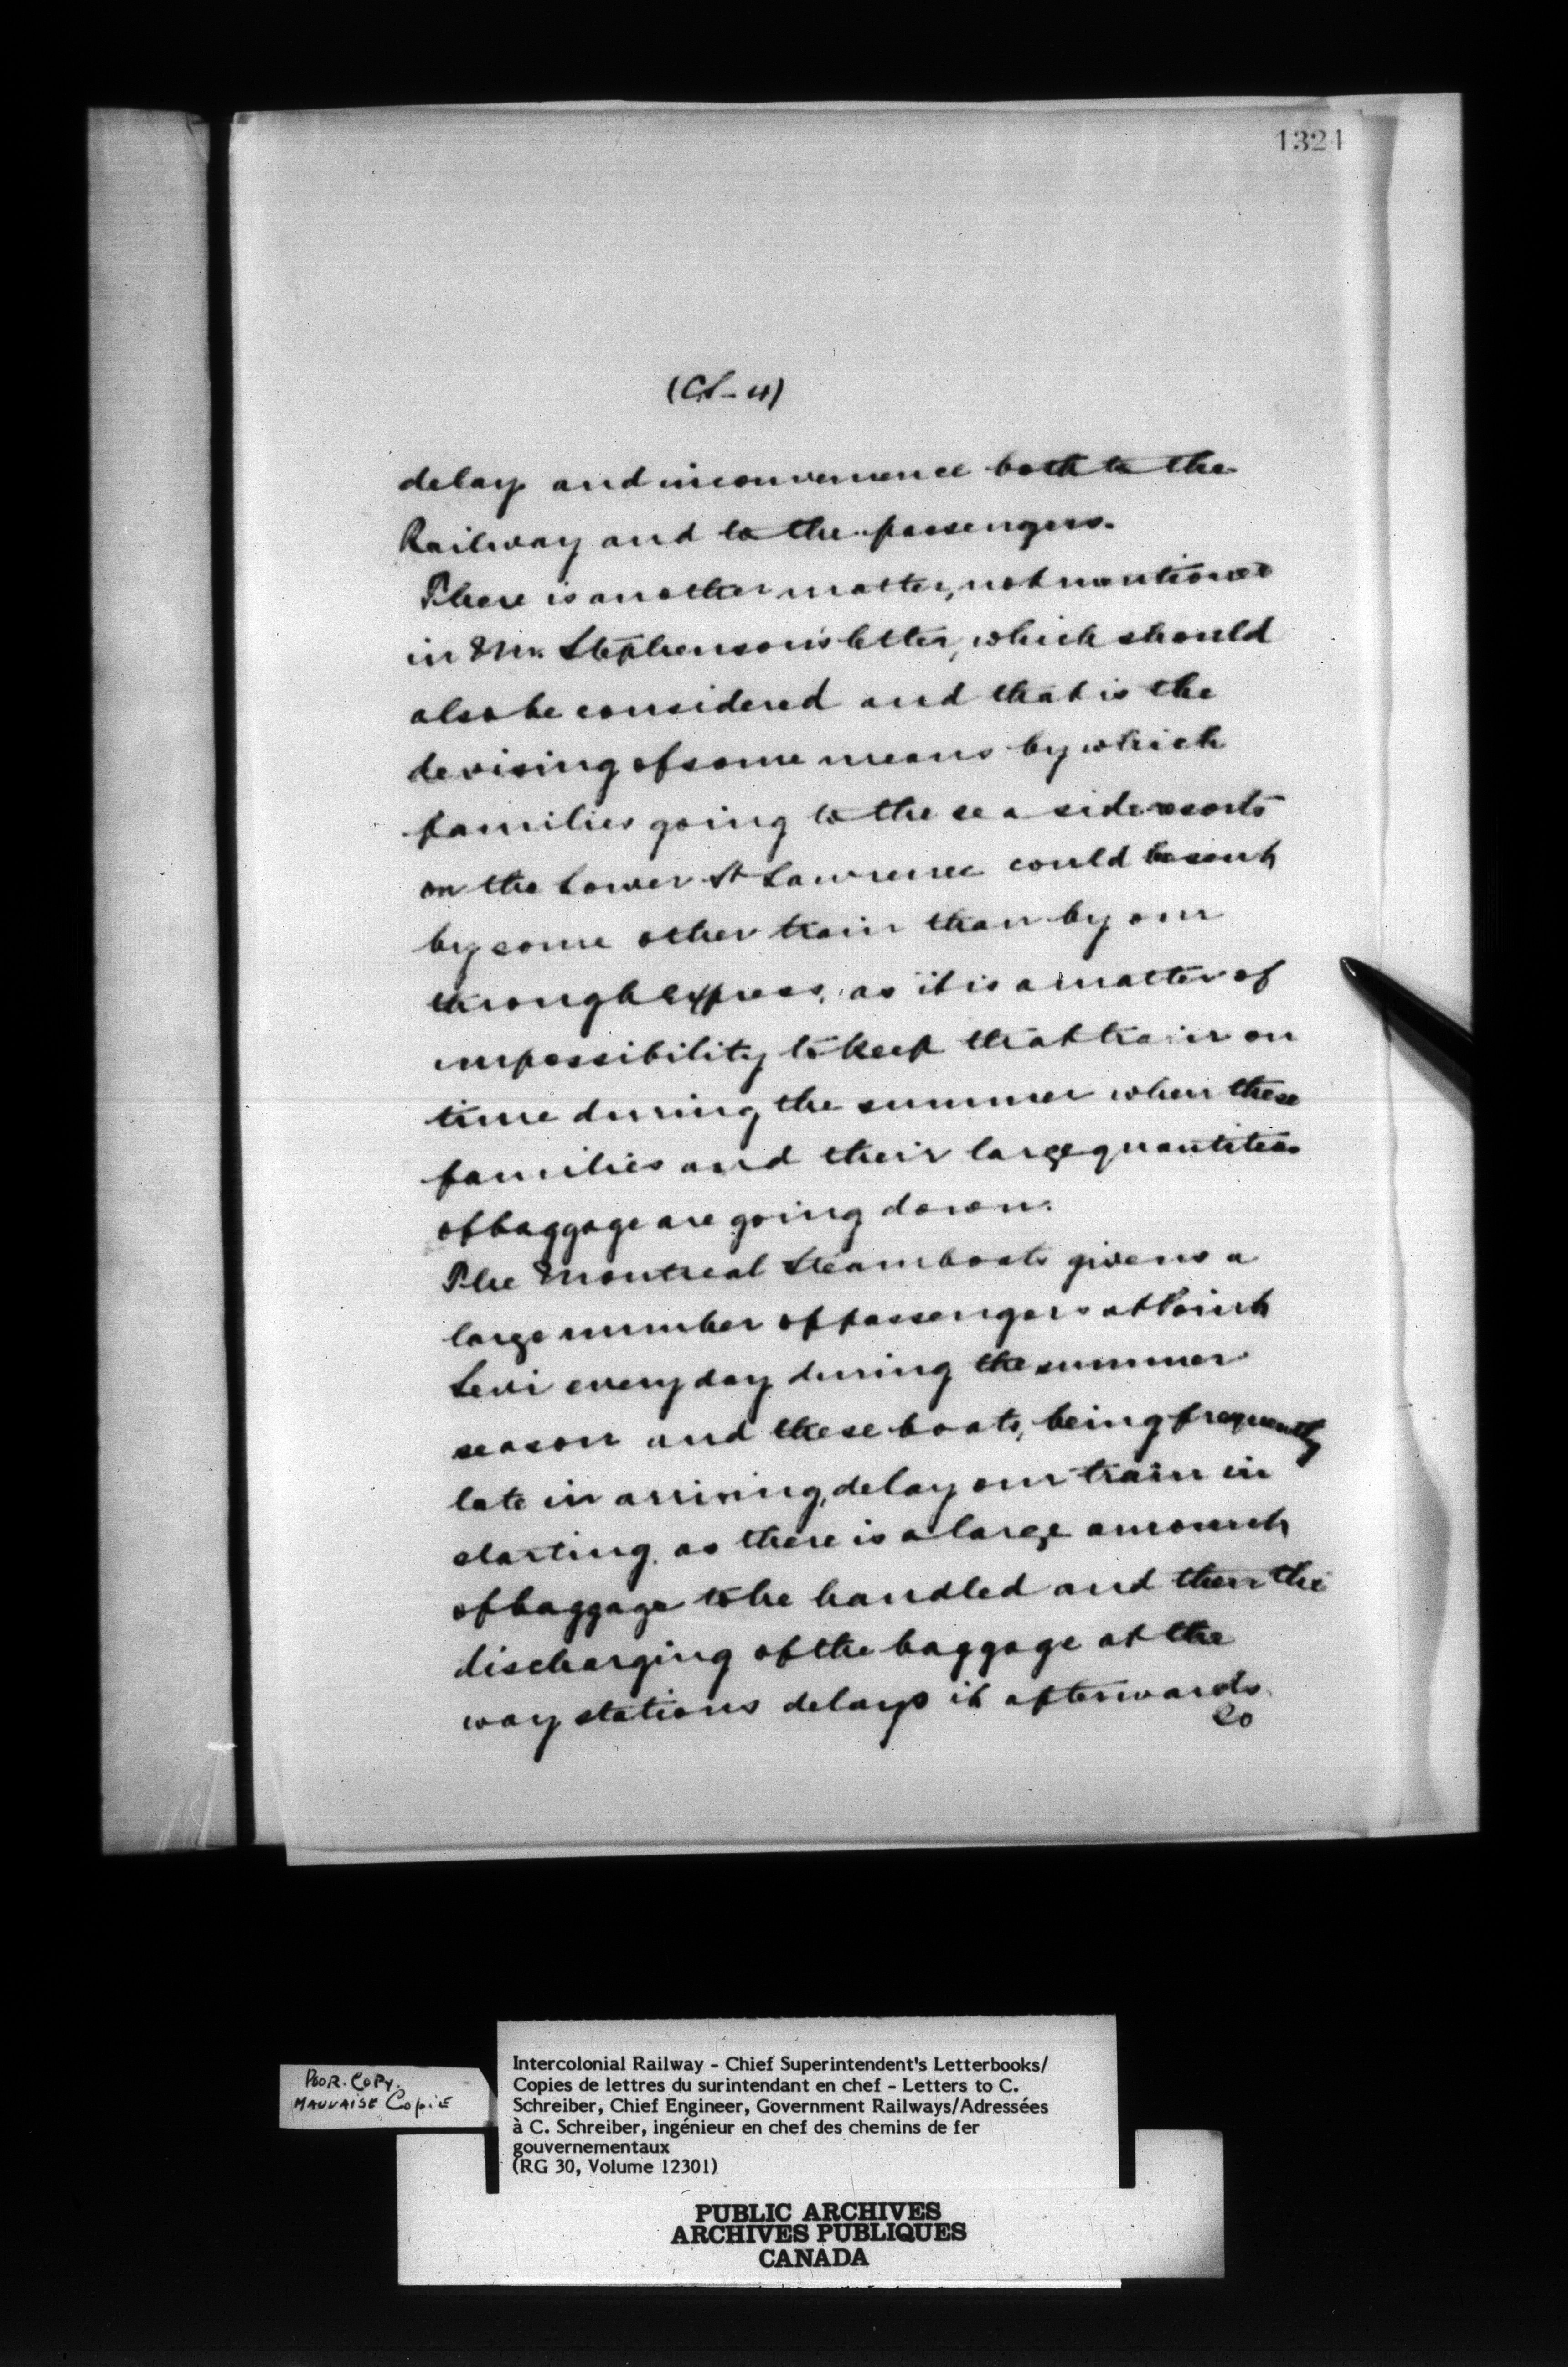 1321
(CS-4)
delay and inconvenience both to the
Railway and to the passengers.
There is another matter, not mentioned
in Mr. Stephenson's letter, which should
also be considered and that is the
devising of some means by which
families going to the sea side resorts
on the Lower St Lawrence could be sent
by some other train than by our
through Express, as it is a matter of
impossibility to keep that train on
time during the summer when these
families and their large quantities
of baggage are going down.
The Montreal Steamboats give us a
large number of passengers at Point
Levi every day during the summer
season and these boats, being frequently
late in arriving, delay our train in
starting, as there is a large amount
of baggage to be handled and then the
discharging of the baggage at the
way stations delays it afterwards.
So
POOR. COPY.
MAUVAISE COPIE
Intercolonial Railway - Chief Superintendent's Letterbooks/
Copies de lettres du surintendant en chef - Letters to C.
Schreiber, Chief Engineer, Government Railways/Adressées
à C. Schreiber, ingénieur en chef des chemins de fer
gouvernementaux
(RG 30, Volume 12301)
PUBLIC ARCHIVES
ARCHIVES PUBLIQUES
CANADA